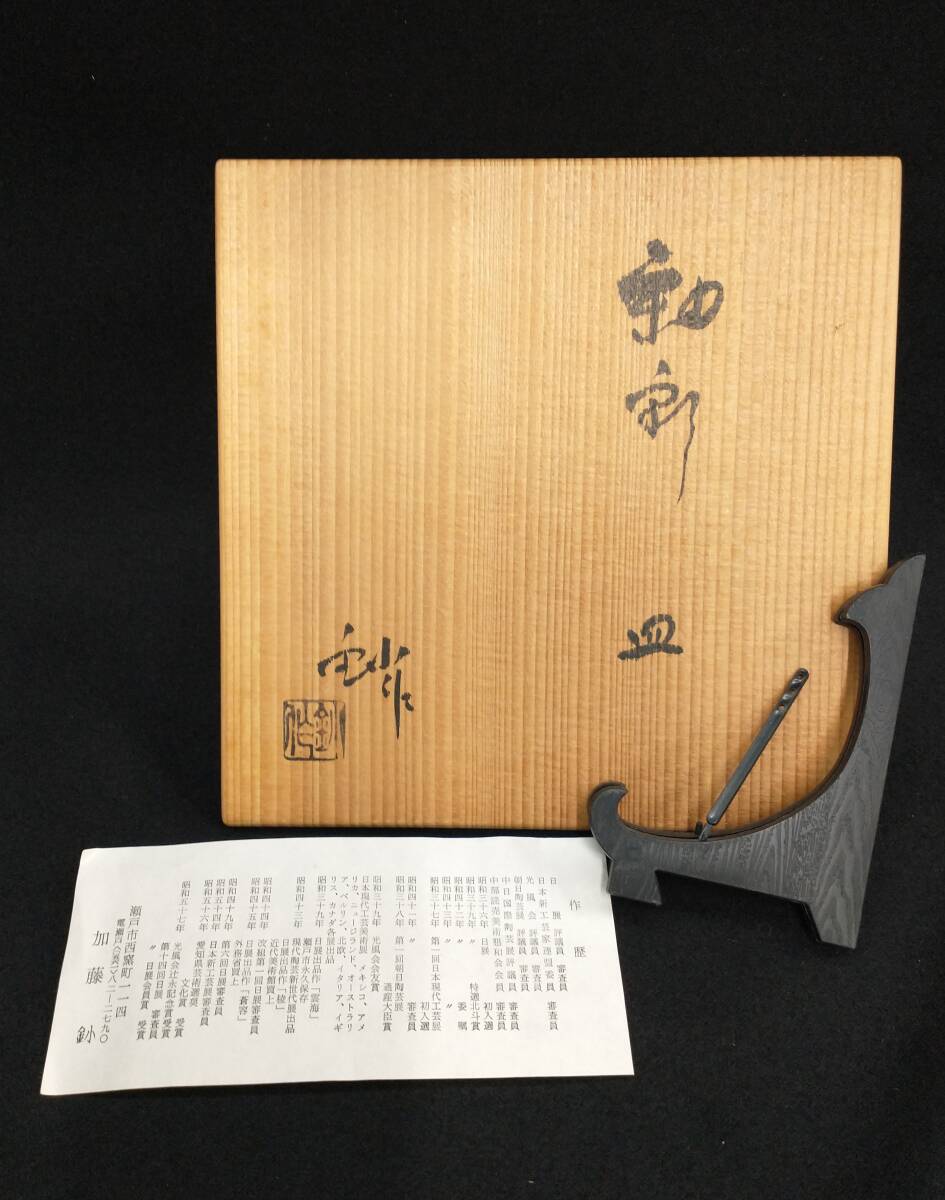 釉彩
皿
鈔作
作歴
日展 評議員 審査員
日本新工芸家連盟委員 審査員
光風会 評議員 審査員
朝日陶芸展 評議員 審査員
中日国際陶芸展評議員 審査員
中部読売美術懇和会会員
昭和三十六年 日展 初入選
昭和三十九年 〃 特選北斗賞
昭和四十二年 〃 委嘱
昭和四十三年 〃 審査員
昭和三十七年 第一回日本現代工芸展 初入選
昭和四十一年 〃 審査員
昭和三十八年 第一回朝日陶芸展 通産大臣賞
昭和三十九年 光風会会友賞
日本現代工芸美術展、メキシコ、アメ
リカ、ニュージランド、オーストラリ
ア、ベルリン、北欧、イタリア、イギ
リス、カナダ各展出品
昭和三十九年 日展出品作「雲海」
瀬戸市永久保存
昭和四十三年 現代陶芸新世代展出品
日展出品作「稜」
近代美術館買上
昭和四十四年 改組第一回日展審査員
昭和四十五年 日展出品作「蒼容」
外務省買上
昭和四十九年 第六回日展審査員
昭和五十四年 日本新工芸展審査員
昭和五十六年 愛知県芸術選奨
文化賞 受賞
昭和五十七年 光風会辻永記念賞受賞
第十四回日展 審査員
〃 日展会員賞 受賞
瀬戸市西窯町一一四
電瀬戸〈〇五六一〉八二―二七九〇
加藤鈔